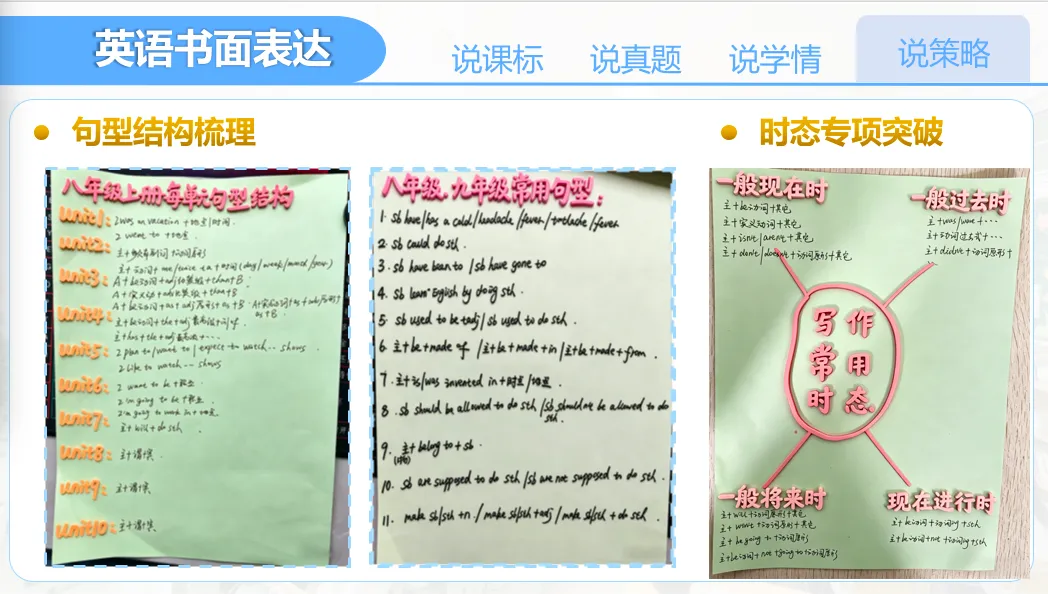 英语书面表达
说课标
说真题
说学情
说策略
句型结构梳理
时态专项突破
八年级上册每单元句型结构
Unit1:
I was on vacation +地点/时间.
I went to +地点.
Unit2:
Unit3:
A+be动词+adj比较级+than+B.
A+实义动+adv比较级+than+B
A+be动词+as+adj原形+as+B.
Unit4:
主+be动词+the+adj最高级+in/of.
主+has+the+adj最高级+...
Unit5:
I plan to/want to/expect to watch... shows.
I like to watch... shows
Unit6:
I want to be+职业.
I'm going to be+职业.
I'm going to work in+地点.
Unit7:
主+will+do sth.
Unit8:
主+谓+宾.
Unit9:
主+谓+宾.
Unit10:
主+谓+宾.
八年级、九年级常用句型:
1. sb have/has a cold/headache/fever/toothache/fever
2. sb could do sth.
3. sb have been to /sb have gone to
4. sb learn English by doing sth.
5. sb used to be+adj/ sb used to do sth.
6. 主+be+made of /主+be+made+in/主+be+made+from.
7. 主+is/was invented in+时间/地点.
8. sb should be allowed to do sth /sb shouldn't be allowed to do sth.
9. 主+belong to+sb.
(物)
10. sb are supposed to do sth /sb are not supposed to do sth.
11. make sb/sth+n./make sb/sth+adj/make sb/sth+do sth.
一般现在时
主+be动词+其它
主+实义动词+其它
主+isn't/aren't+其它
主+don't/doesn't+动词原形+其它
一般过去时
主+was/were+...
主+动词过去式+...
主+didn't+动词原形+
写作
常用
时态
一般将来时
主+will+动词原形+其它
主+won't+动词原形+其它
主+be going to+动词原形
主+be动词+not+going to+动词原形
现在进行时
主+be动词+动词ing+sth
主+be动词+not+动词ing+sth